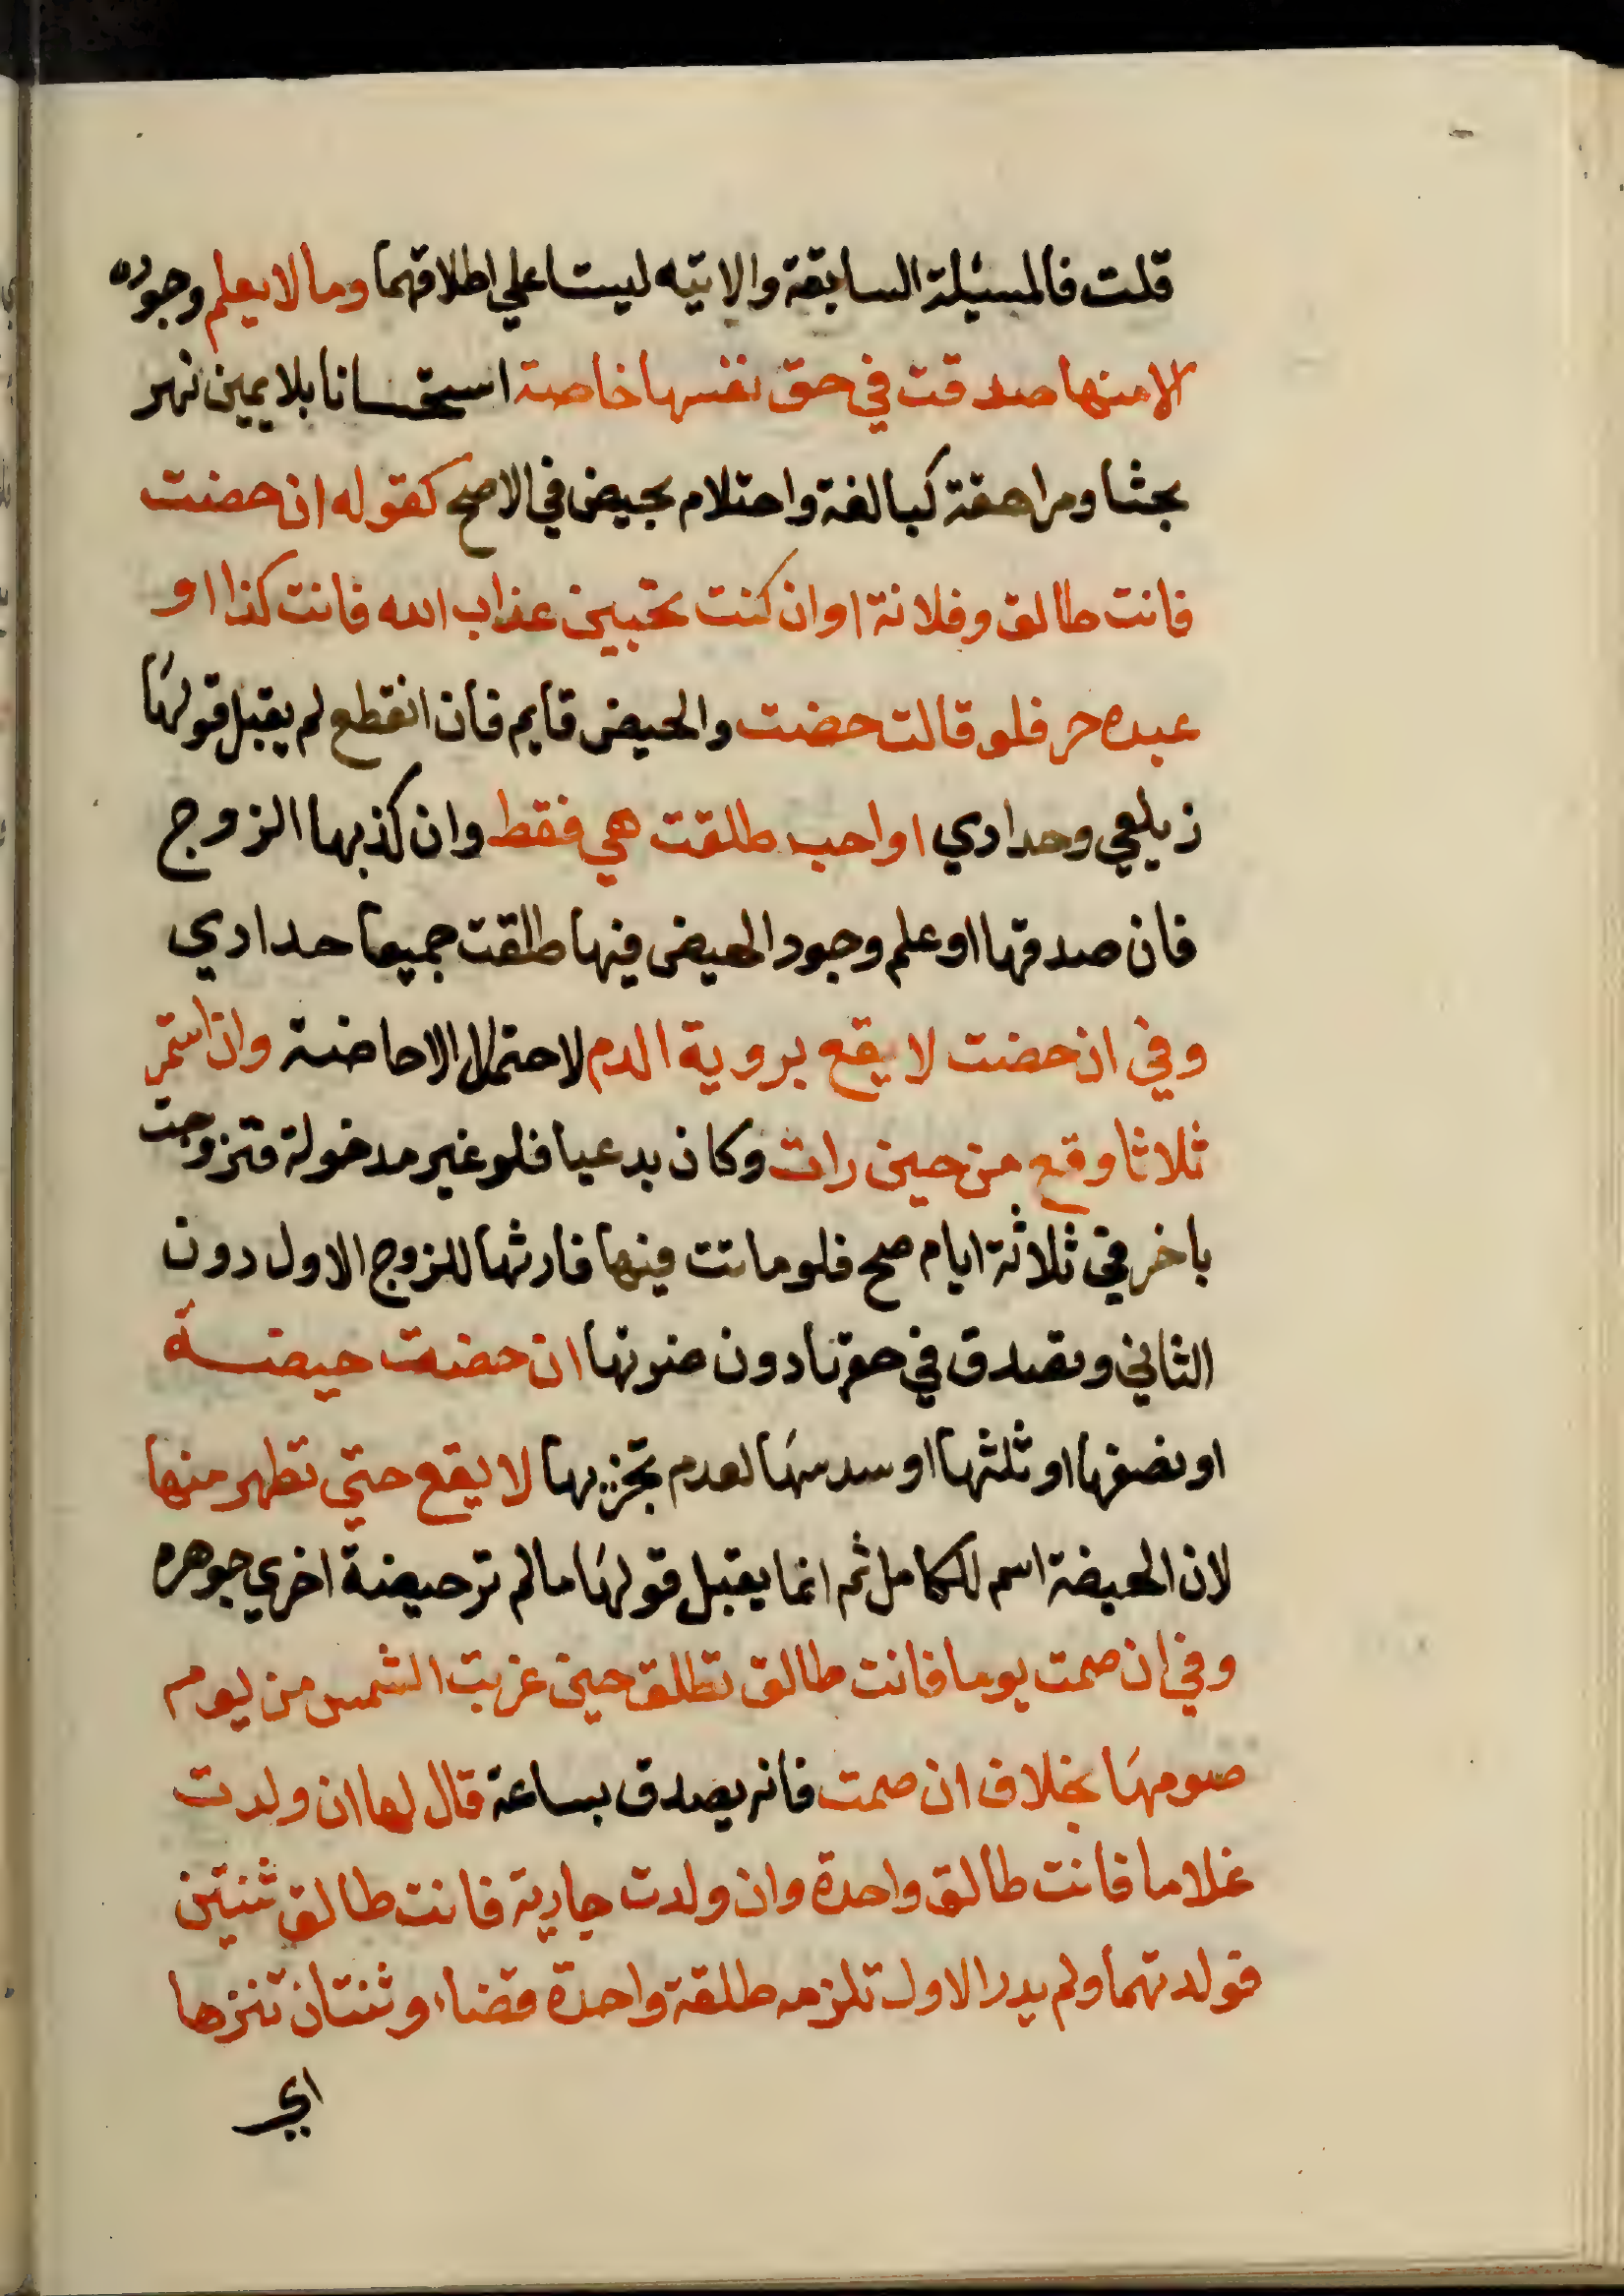 قلت فالمسئلة السابقة والاتيه ليستا علي اطلاقهما وما لا يعلم وجوده
الا منها صدقت في حق نفسها خاصة استحسانا بلا يمين نهر
بحثا ومراهقة كبالغة واحتلام بحيض في الاصح كقوله ان حضت
فانت طالق وفلانة او ان كنت تحبين عذاب الله فانت كذا او
عبده حر فلو قالت حضت والحيض قايم فان انقطع لم يقبل قولها
زيلعي وحدادي او احب طلقت هي فقط وان كذبها الزوج
فان صدقها او علم وجود الحيض فيها طلقت جميعا حدادي
وفي ان حضت لا يقع بروية الدم لاحتمال الاحاضة وان استمر
ثلاثا وقع من حين رات وكان بدعيا فلو غير مدخولة فتزوجت
باخر في ثلاثة ايام صح فلو ماتت فيها فارثها للزوج الاول دون
الثاني وتصدق في حقها دون ضرتها ان حضت حيضة
او نصفها او ثلثها او سدسها لعدم تجزيها لا يقع حتي تطهر منها
لان الحيضة اسم للكامل ثم انما يقبل قولها ما لم تر حيضة اخري جوهره
وفي ان صمت يوما فانت طالق تطلق حين غربت الشمس من يوم
صومها بخلاف ان صمت فانه يصدق بساعة قال لها ان ولدت
غلاما فانت طالق واحدة وان ولدت جارية فانت طالق ثنتين
فولدتهما ولم يدر الاول تلزمه طلقة واحدة قضاء وثنتان تنزها
اي